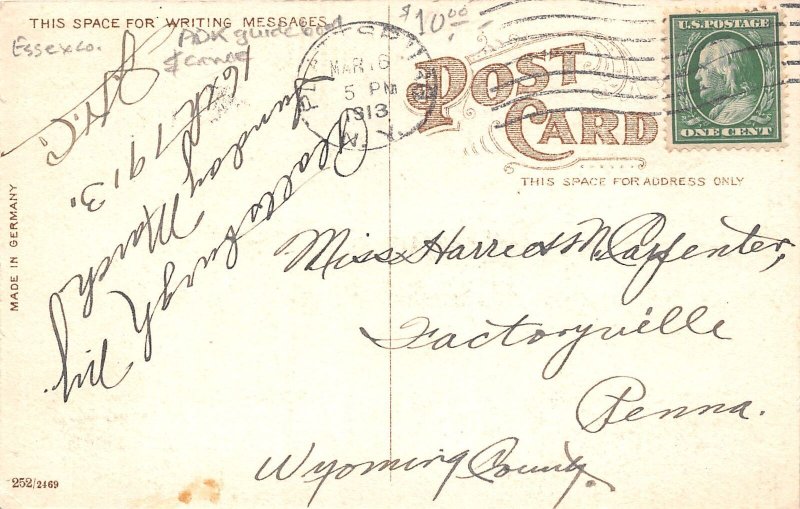 THIS SPACE FOR WRITING MESSAGES
Essex co.
ADK guide boat
& canoe
$10.00
PLATTSBURGH
MAR 16
5 PM
1913
N.Y.
POST
CARD
U.S. POSTAGE
ONE CENT
THIS SPACE FOR ADDRESS ONLY
Plattsburgh N.Y.
Sunday March
16th 1913.
MADE IN GERMANY
Miss Harriet M. Carpenter,
Factoryville
Penna.
Wyoming County.
252/2469